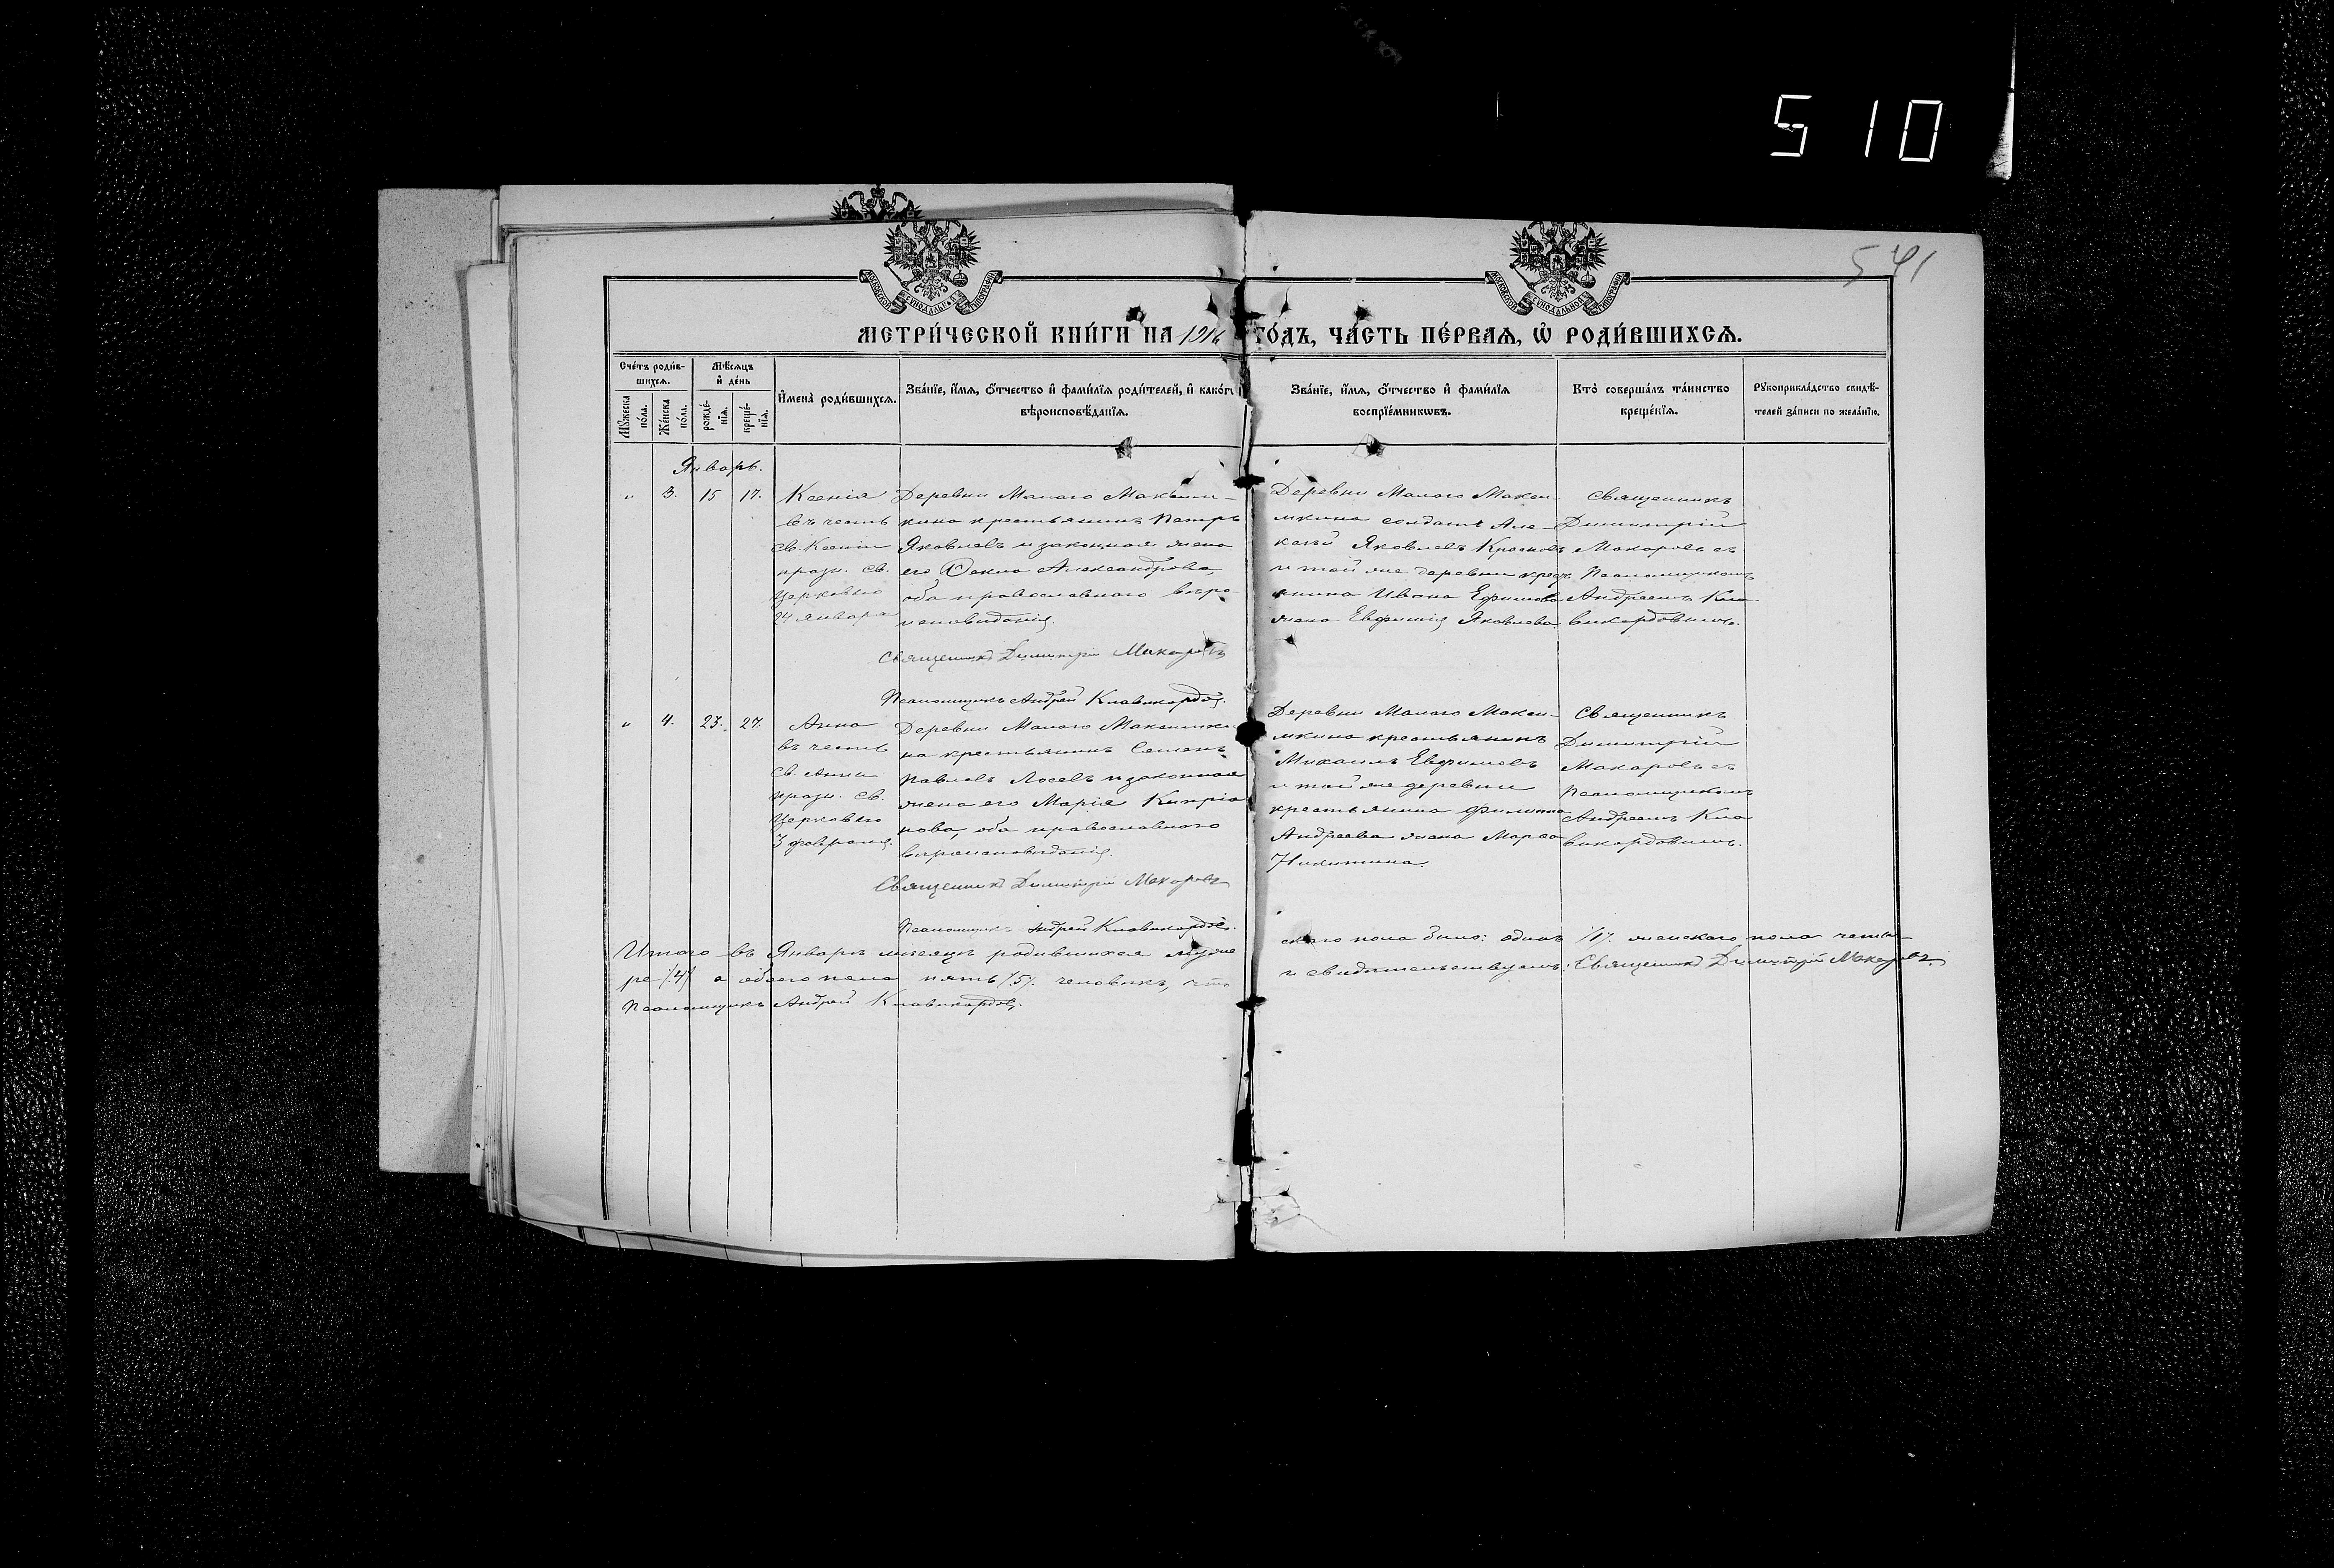 510
541
МОСКОВСКОЙ СУНОДАЛЬНОЙ ТИПОГРАФІИ
МОСКОВСКОЙ СУНОДАЛЬНОЙ ТИПОГРАФІИ
МЕТРИ́ЧЕСКОЙ КНИ́ГИ НА 1916 ГО́ДЪ, ЧА́СТЬ ПЕ́РВАЯ, Ѡ РОДИ́ВШИХСЯ.
Сче́тъ роди́в-
шихся.
Мѣ́сяцъ
и де́нь
Му́жеска
по́ла.
Же́нска
по́ла.
рожде́-
нія.
креще́-
нія.
Имена̀ роди́вшихся.
Зва́нїе, и́мя, ѻ́тчество и фами́лїя роди́телей, и како́гѡ
вѣроисповѣ́данїя.
Зва́нїе, и́мя, ѻ́тчество и фами́лїя
воспрїе́мникѡвъ.
Кто̀ соверша́лъ та́инство
креще́нїя.
Рукоприкла́дство свидѣ́-
телей за́писи по жела́нїю.
Январь.
" 3. 15 17.
Ксенія
въ честь
св. Ксеніи
празд. св.
Церковью
24 января
Деревни Малаго Максим-
кина крестьянинъ Петръ
Яковлевъ и законная жена
его Ѳекла Александрова,
оба православнаго вѣро-
исповѣданія.
Священникъ Димитрій Макаровъ
Псаломщикъ Андрей Клавикордовъ.
Деревни Малаго Макси-
мкина солдатъ Але-
ксѣй Яковлевъ Красновъ
и той же деревни крест-
янина Ивана Ефимова
жена Евфимія Яковлева.
Священникъ
Димитрій
Макаровъ съ
Псаломщикомъ
Андреемъ Кла-
викордовымъ.
" 4. 23. 27.
Анна
въ честь
св. Анны
празд. св.
Церковью
3 февраля.
Деревни Малаго Максимки-
на крестьянинъ Семенъ
Павловъ Лосевъ и законная
жена его Марія Кипріа-
нова, оба православнаго
вѣроисповѣданія.
Священникъ Димитрій Макаровъ
Псаломщикъ Андрей Клавикордовъ.
Деревни Малаго Макси-
мкина крестьянинъ
Михаилъ Евфимовъ
и той же деревни
крестьянина Филиппа
Андреева жена Марѳа
Никитина.
Священникъ
Димитрій
Макаровъ съ
Псаломщикомъ
Андреемъ Кла
викордовымъ.
Итого въ Январѣ мѣсяцѣ родившихся муже скаго пола было: одинъ /1/. женскаго пола четы-
ре /4/ а обоего пола пять /5/. человѣкъ, что и свидѣтельствуемъ: Священникъ Димитрій Макаровъ.
Псаломщикъ Андрей Клавикордовъ.